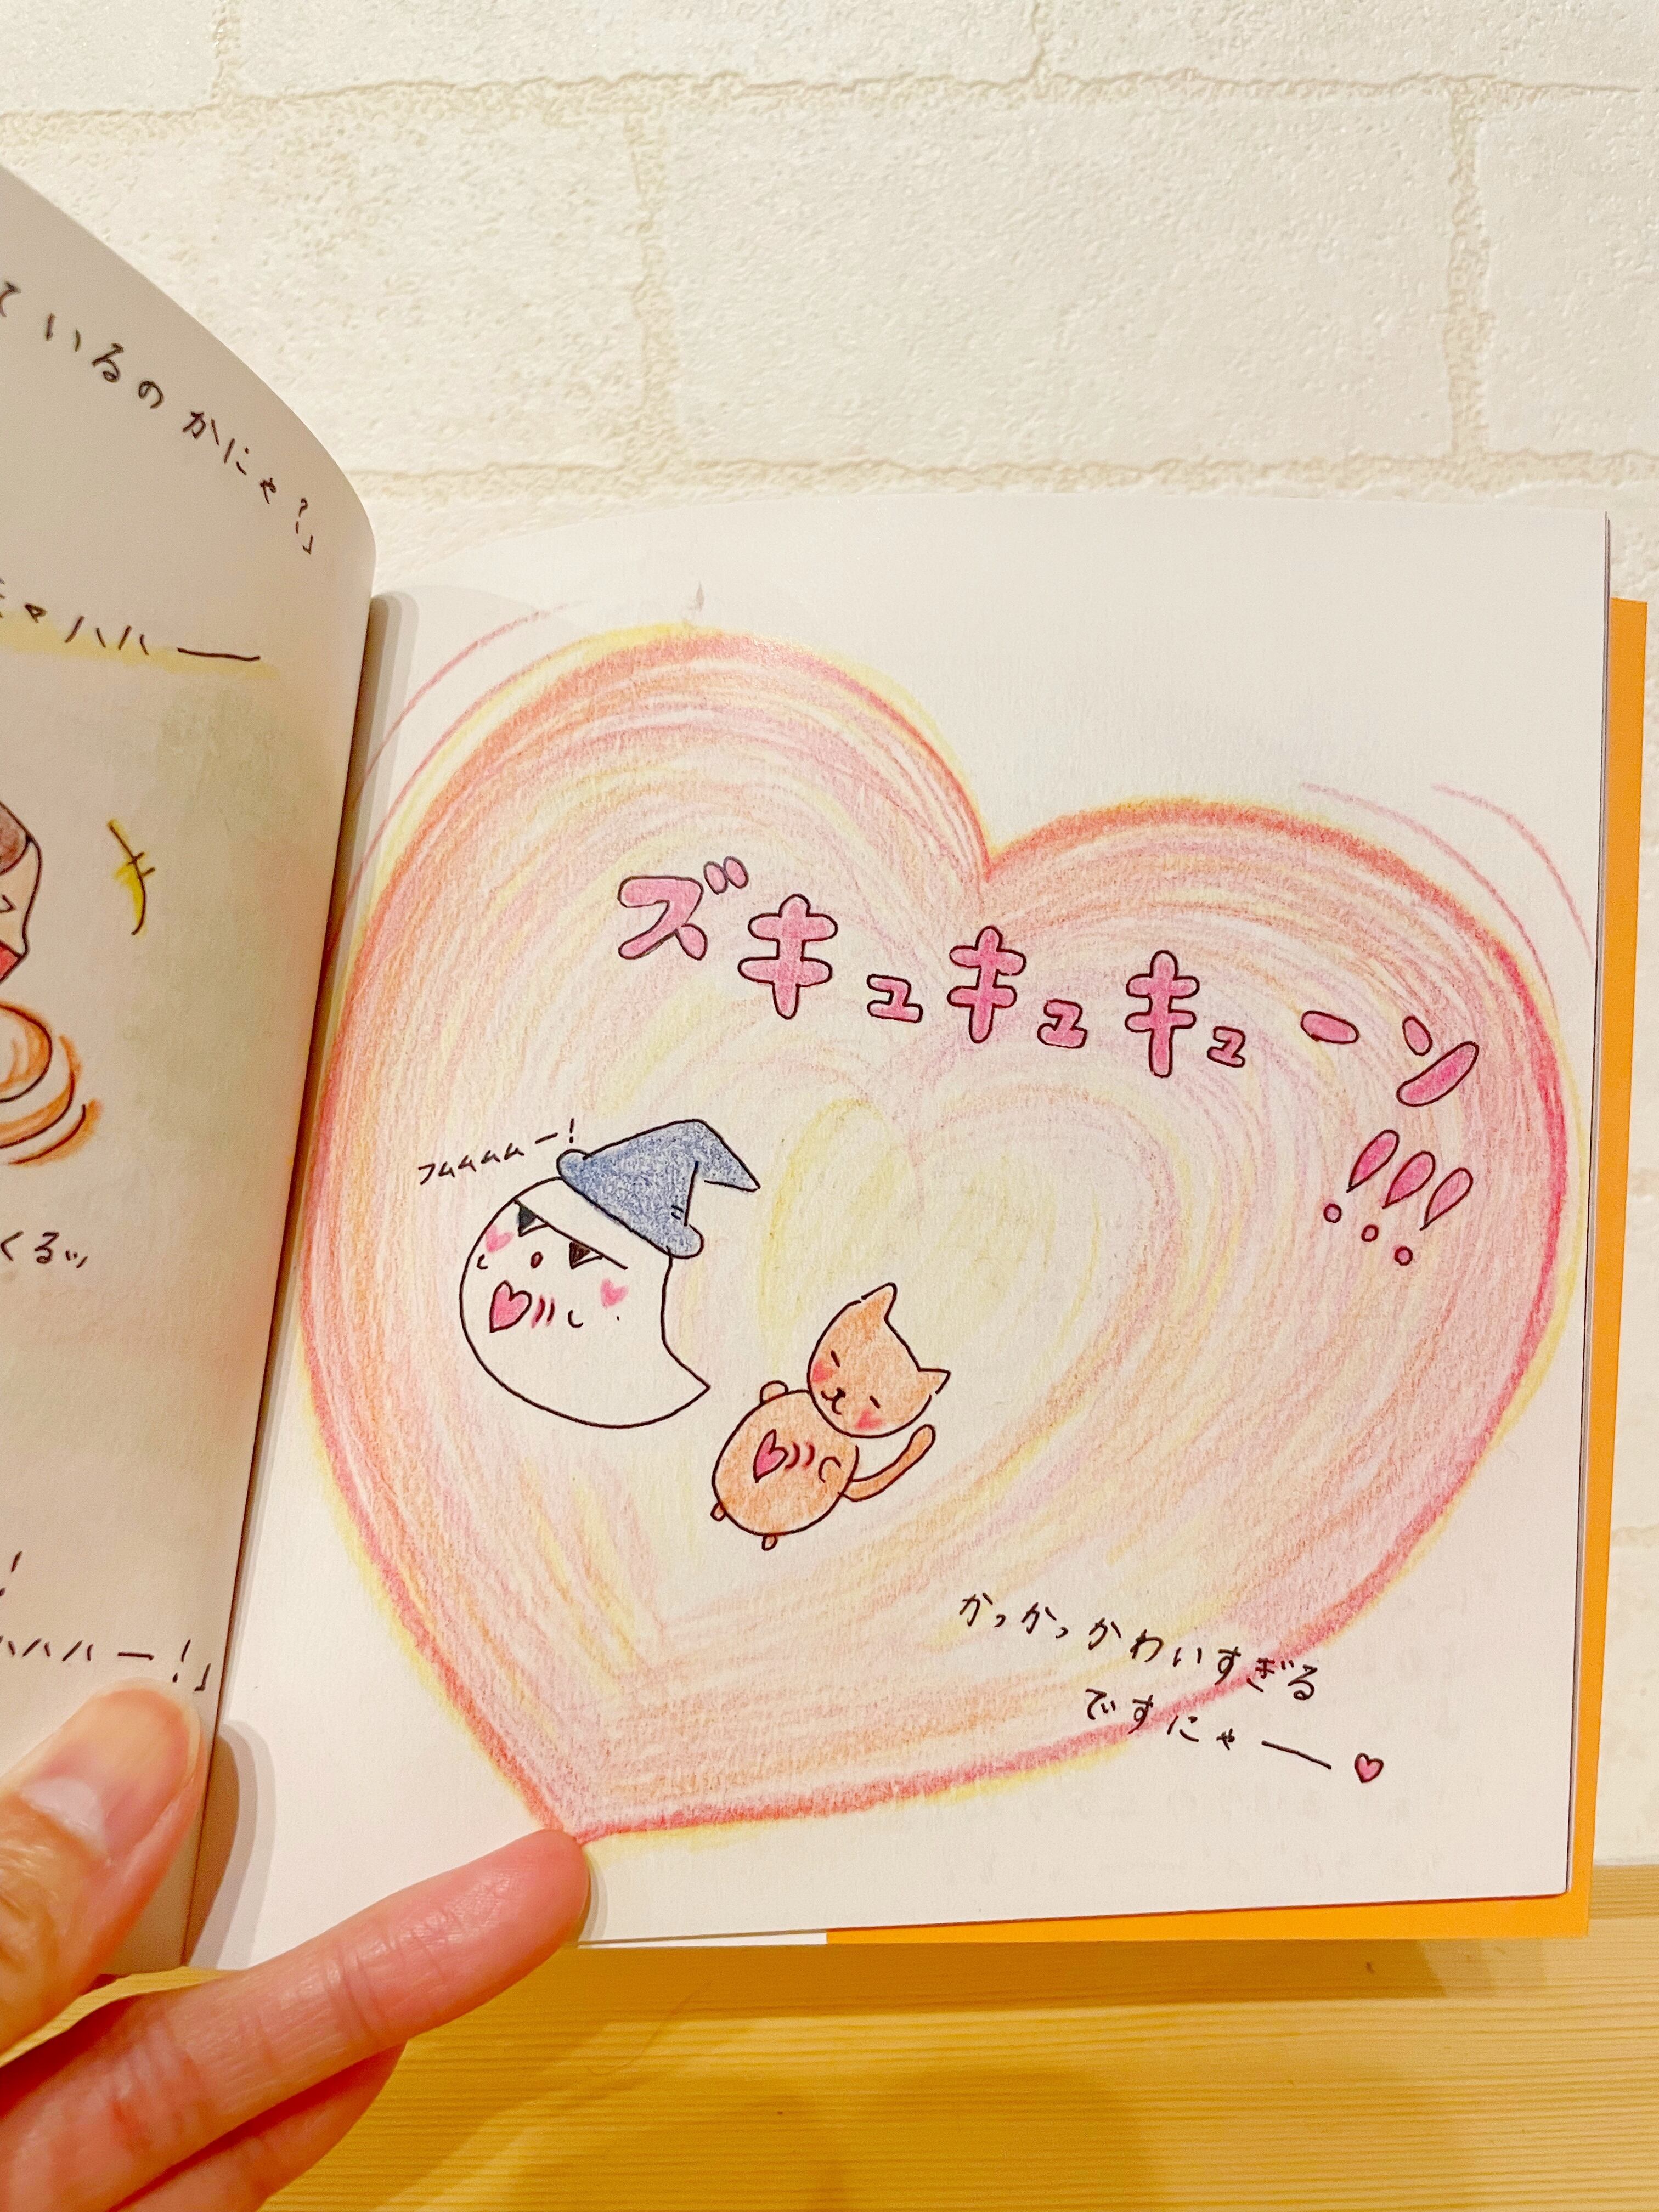 ているのかにゃ?」
キャハハー
くるッ
!
ハハハー!」
ズキュキュキューン
!!!
フムムムムー!
かっかっかわいすぎる
ですにゃー♥